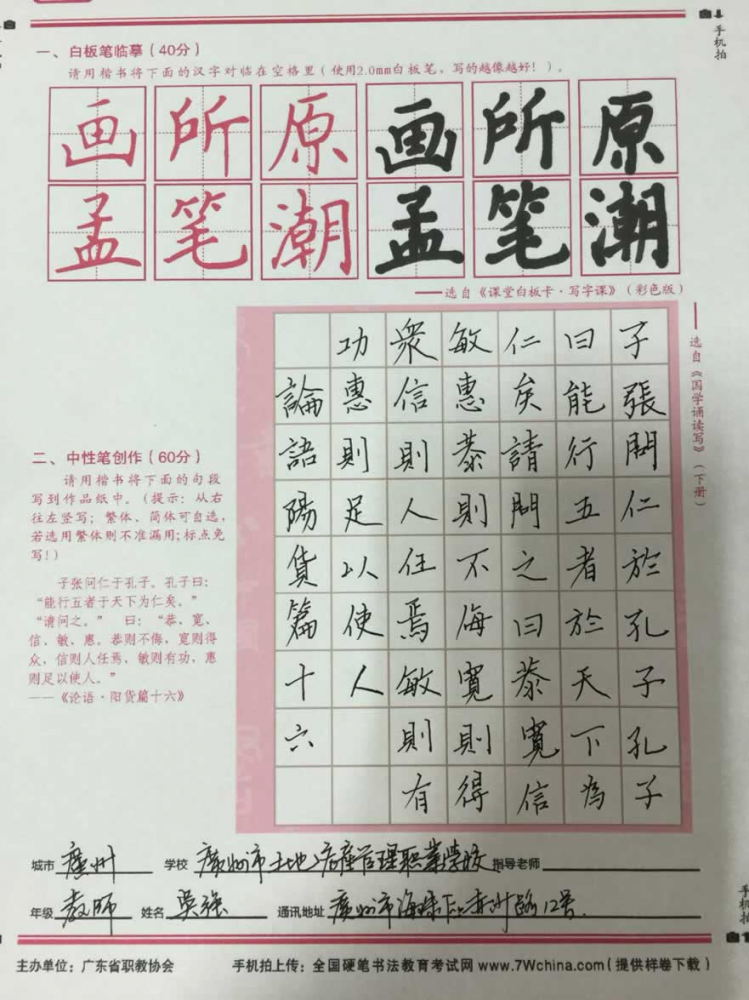 手机拍
一、白板笔临摹（40分）
请用楷书将下面的汉字对临在空格里（使用2.0mm白板笔，写的越像越好！）。
画所原画所原
孟笔潮孟笔潮
——选自《课堂白板卡·写字课》（彩色版）
——选自《国学诵读写》（下册）
子張問仁於孔子孔子
曰能行五者於天下為
仁矣請問之曰恭寬信
敏惠恭則不侮寬則得
衆信則人任焉敏則有
功惠則足以使人
論語陽貨篇十六
二、中性笔创作（60分）
请用楷书将下面的句段
写到作品纸中。（提示：从右
往左竖写；繁体、简体可自选，
若选用繁体则不准漏用；标点免
写！）
子张问仁于孔子。孔子曰：
“能行五者于天下为仁矣。”
“请问之。” 曰：“恭、宽、
信、敏、惠。恭则不侮，宽则得
众，信则人任焉，敏则有功，惠
则足以使人。”
——《论语·阳货篇十六》
城市 廣州 学校 廣州市土地房產管理職業學校 指导老师
年级 教师 姓名 吳強 通讯地址 廣州市海珠區 路12号
手机拍
主办单位：广东省职教协会 手机拍上传：全国硬笔书法教育考试网 www.7Wchina.com（提供样卷下载）